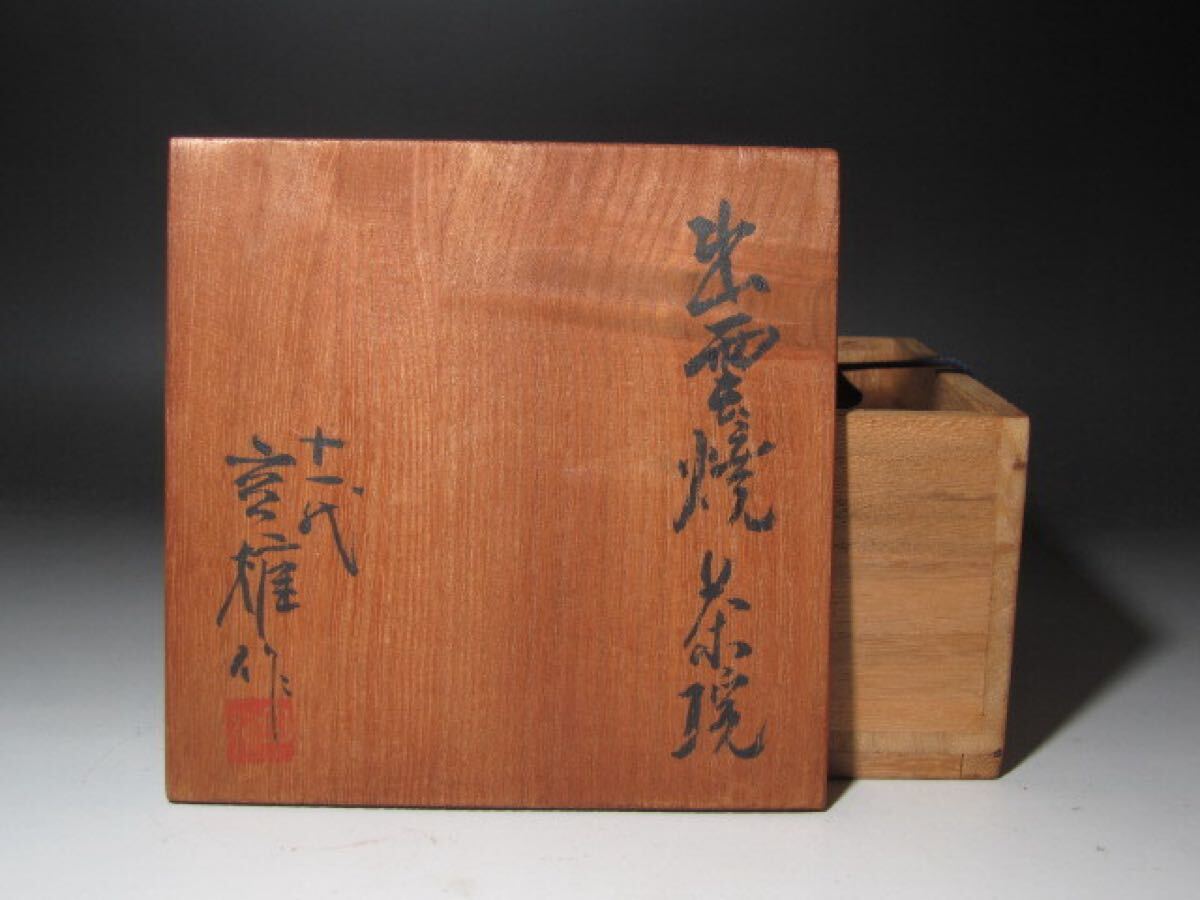 出雲焼 茶碗
十一代
空雄作